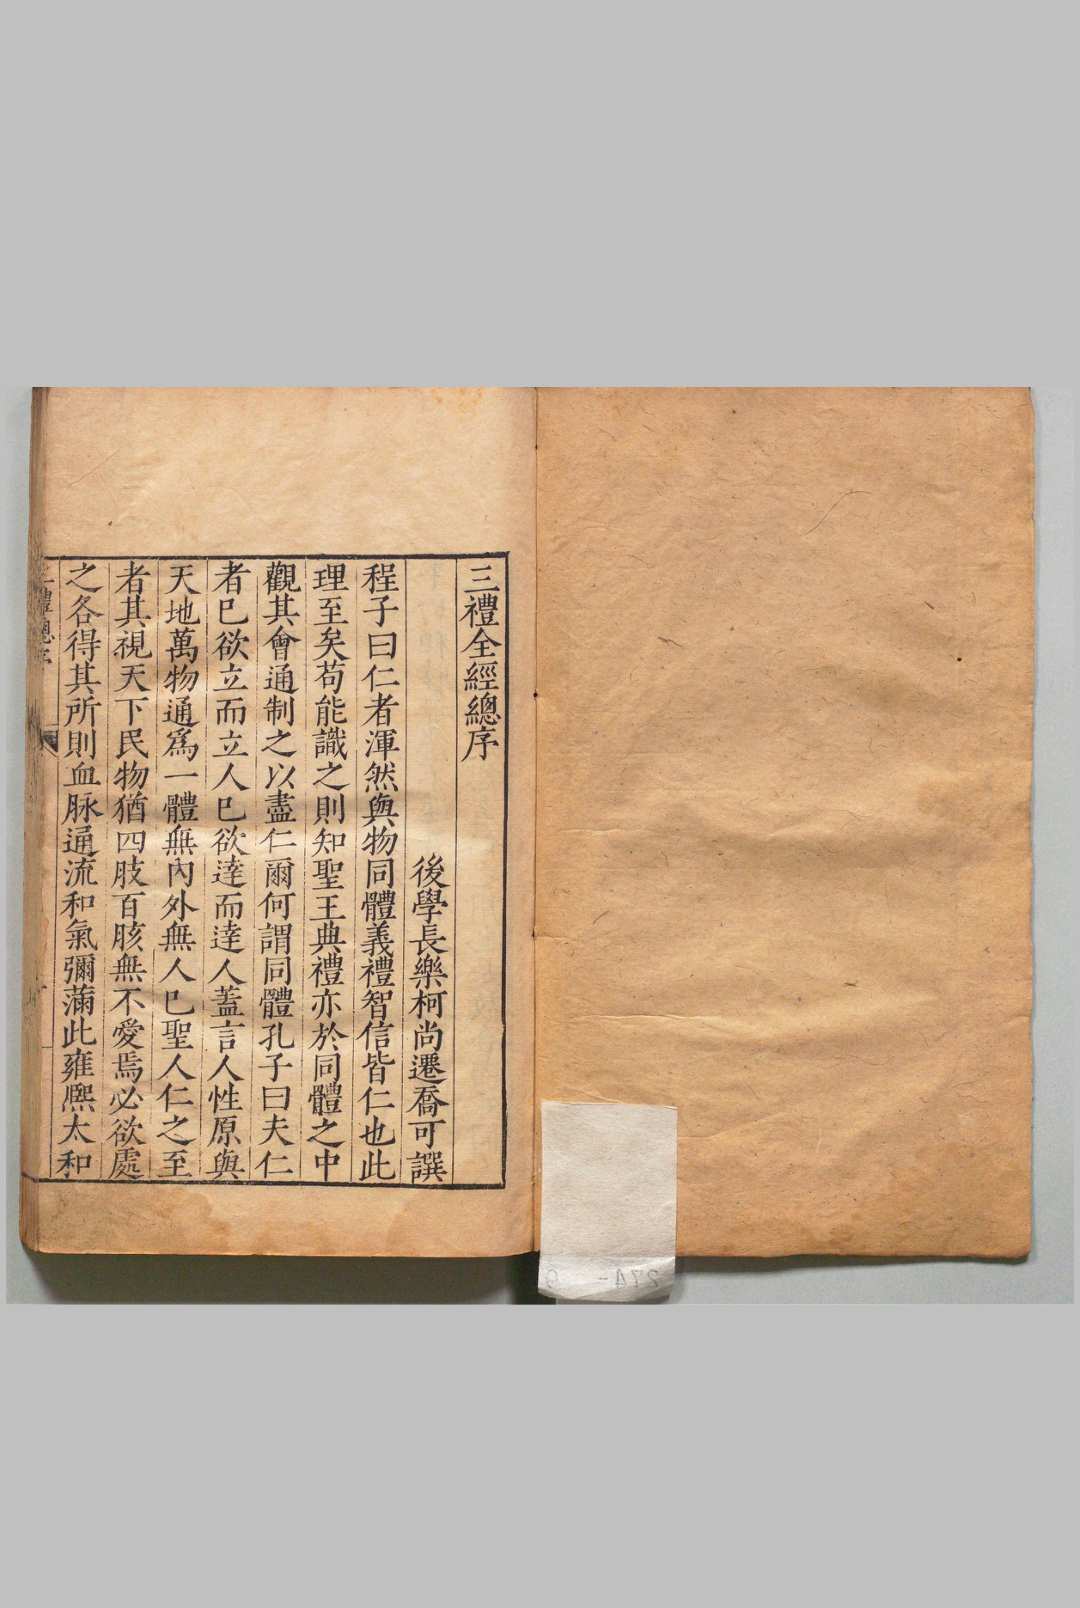 三禮全經總序
後學長樂柯尚遷喬可譔
程子曰仁者渾然與物同體義禮智信皆仁也此
理至矣苟能識之則知聖王典禮亦於同體之中
觀其會通制之以盡仁爾何謂同體孔子曰夫仁
者已欲立而立人已欲達而達人蓋言人性原與
天地萬物通爲一體無內外無人已聖人仁之至
者其視天下民物猶四肢百胲無不愛焉必欲處
之各得其所則血脉通流和氣彌滿此雍熈太和
三禮總序
274-9